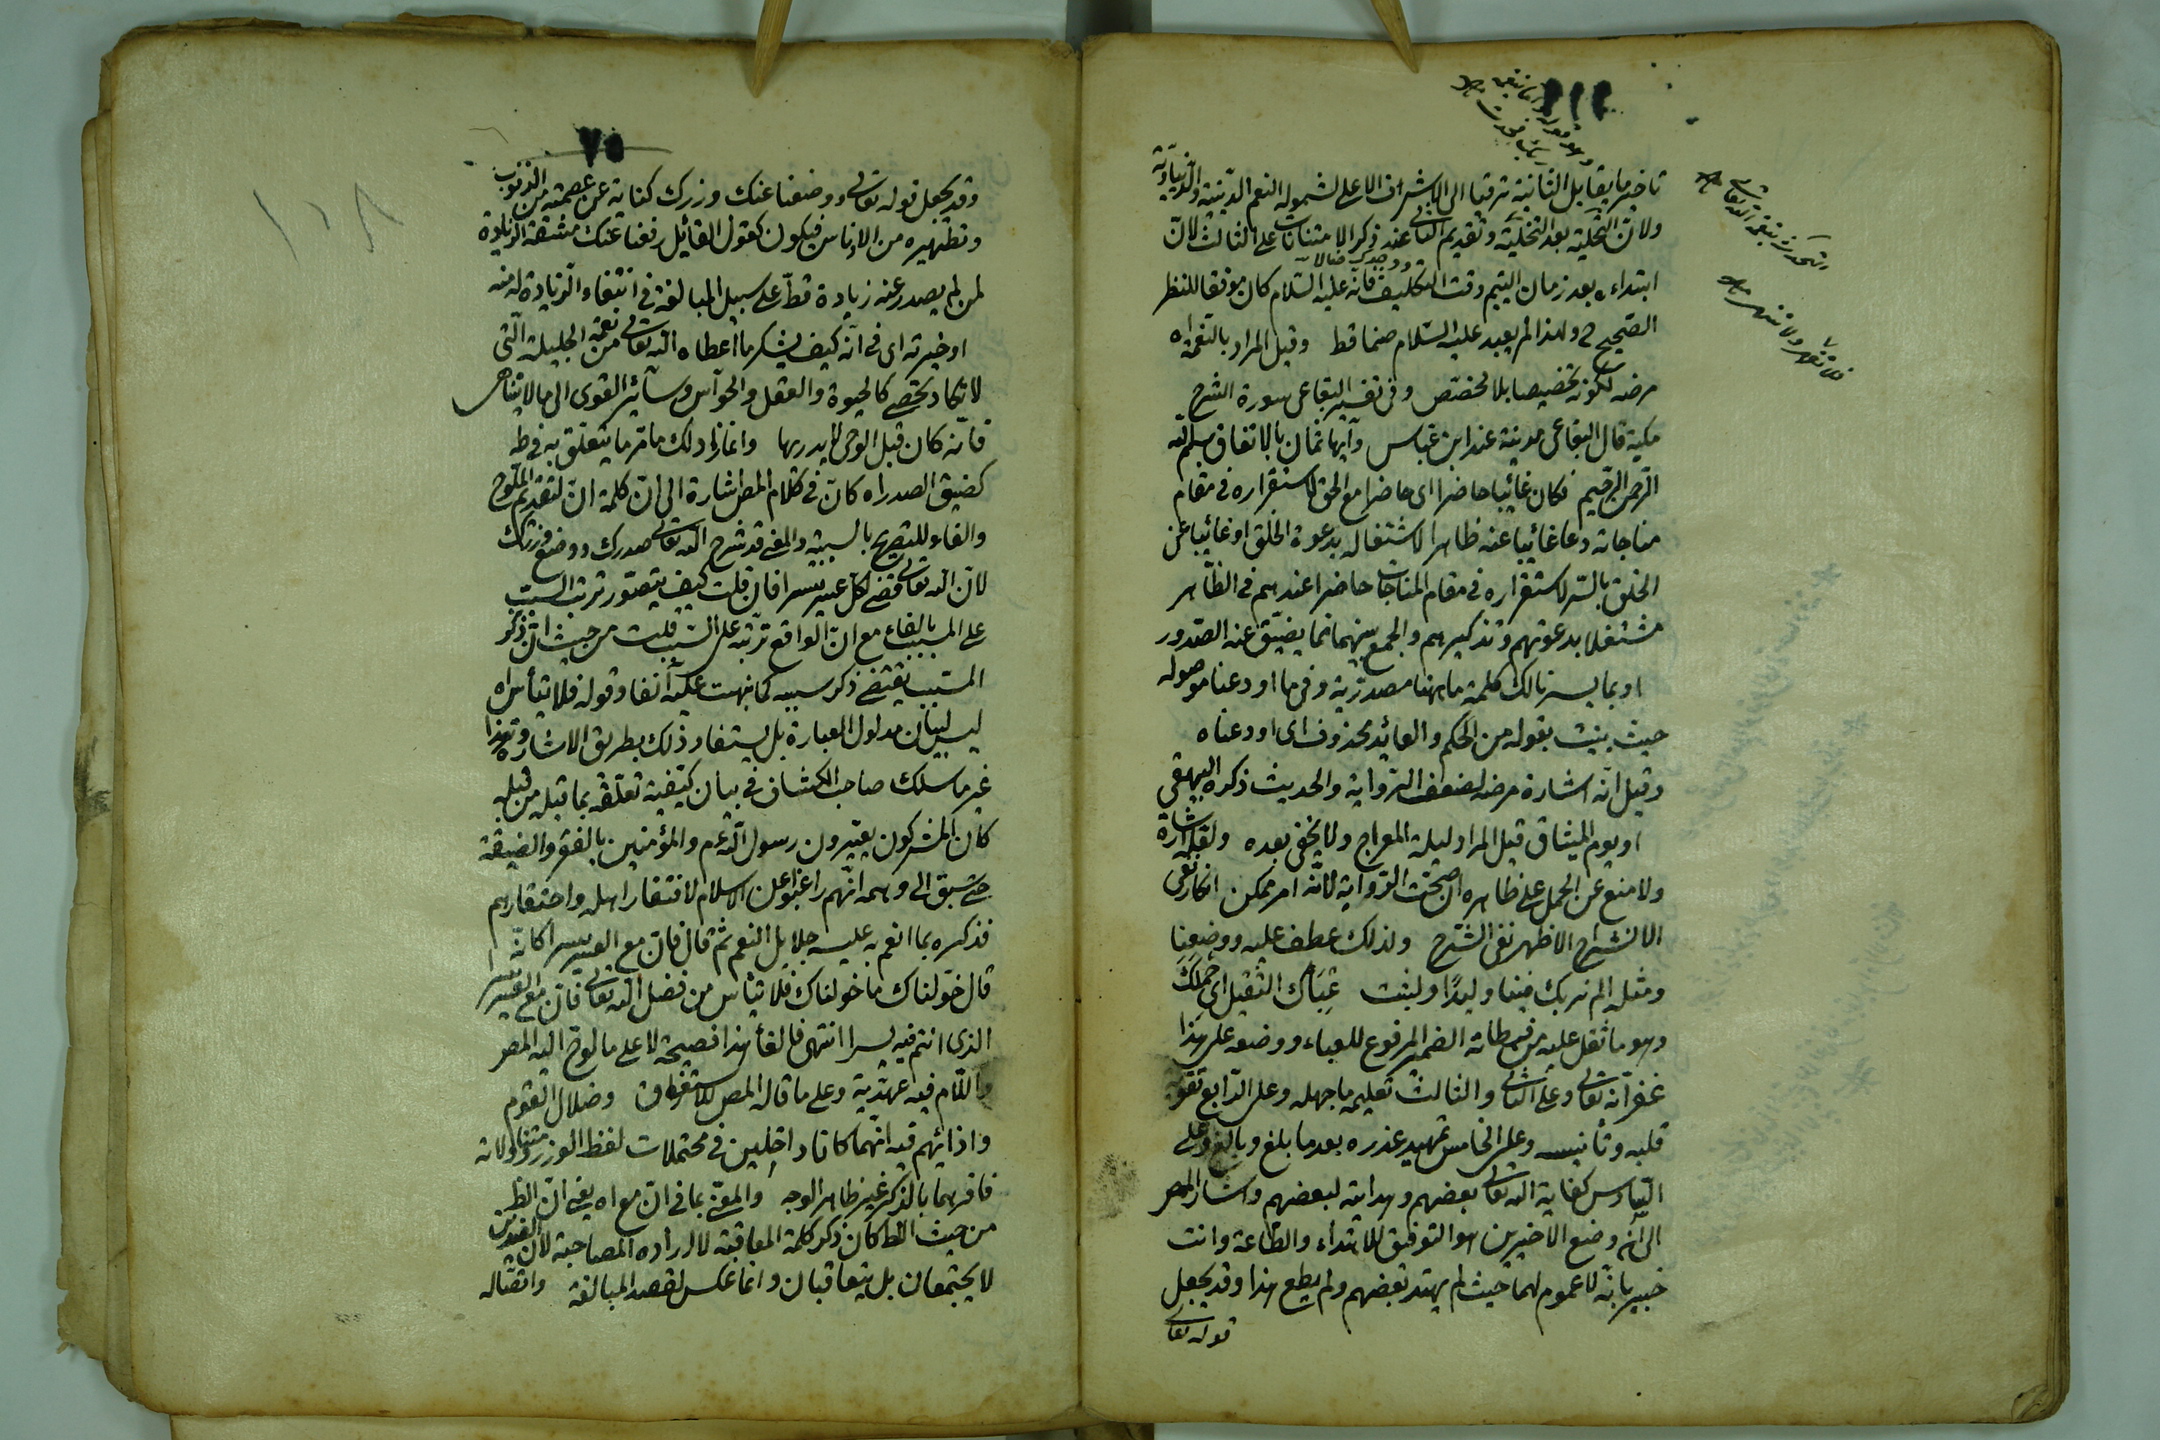 ١١١
وهو قوله واما بنعمة
ربك فحدث
تاخير ما يقابل الثانية ترقيا الى الاشرف الاعلى لشموله النعم الدينية والدنياوية
ولان التحلية بعد التخلية وتقديم الثاني عند ذكر الامتنانات على الثالث لان
ووجدك ضالا
ابتداءه بعد زمان اليتم وقت التكليف فانه عليه السلام كان موفقا للنظر
الصحيح ح ولهذا لم يعبد عليه السلام صنما قط وقيل المراد بالنعمة اه
مرضه لكونه تخصيصا بلا مخصص وفي تفسير البقاعي سورة الشرح
مكية قال البقاعي مدينة عند ابن عباس وآيها ثمان بالاتفاق بسم الله
الرحمن الرحيم فكان غائبا حاضرا اى حاضرا مع الحق لاستقراره في مقام
مناجاته دعا غائبا عنه ظاهرا لاشتغاله بدعوة الخلق او غائبا عن
الخلق بالسر لاستقراره في مقام المناجات حاضرا عندهم في الظاهر
مشتغلا بدعوتهم وتذكيرهم والجمع بينهما مما يضيق عنه الصدور
او بما يسرنا لك كلمة ما ههنا مصدرية وفي ما اودعنا موصوله
حيث بينت بقوله من الحكم والعائد محذوف اى اودعناه
وقيل انه اشارة مرضه لضعف الرواية والحديث ذكره البيهقي
او يوم الميثاق قيل المراد ليلة المعراج ولا يخفى بعده ولعله اشارة
ولا منع عن الحمل على ظاهره ان صحت الرواية لانه امر ممكن انكار نفى
الانشراح الاظهر نفى الشرح ولذلك عطف عليه ووضعنا
ومثله الم نربك فينا وليدا ولبثت عِبَأك الثقيل اى حِملَك
وهو ما ثقل عليه من فرطاته الضمير المرفوع للعباء ووضعه على هذا
غفرانه تعالى وعلى الثاني والثالث تعليمه ما جهله وعلى الرابع تقوية
قلبه وتأنيسه وعلى الخامس تمهيد عذره بعدما بلغ وبالغ وعلى
السادس كفاية الله تعالى بعضهم وهدايته لبعضهم واشار المص
الى ان وضع الاخيرين هو التوفيق للاهتداء والطاعة وانت
خبير بانه لا عموم لهما حيث لم يهتد بعضهم ولم يطع هذا وقد يجعل
قوله تعالى
فلا تقهر ولا تنهر
٧٥
١٠٨
وقد يجعل قوله تعالى ووضعنا عنك وزرك كناية عن عصمته من الذنوب
وتطهيره من الادناس فيكون كقول القائل رفعنا عنك مشقة الزيارة
لمن لم يصدر عنه زيارة قط على سبيل المبالغة في انتفاء الزيارة له منه
او خيرته اى في انه كيف يشكر ما اعطاه الله تعالى من نعمه الجليلة التى
لا تكاد تحصى كالحيوة والعقل والحواس وسائر القوى الى ما لا يتناهى
فانه كان قبل الوحى لا يدريها وانما زاد لك ما مر ما يتعلق به في طه
كضيق الصدر اه كان في كلام المص اشارة الى ان كلمة ان لتقدم الملوح
والفاء للتصريح بالسببية والمعنى قد شرح الله تعالى صدرك ووضع وزرك
لان الله تعالى قضى لكل عسر يسرا فان قلت كيف يتصور ترتب السبب
على المسبب بالفاء مع ان الواقع ترتبه على السبب قلت من حيث ان ذكر
المسبب يقتضى ذكر سببه كما نبهت عليه آنفا وقوله فلا تيأس اه
ليس لبيان مدلول العبارة بل يستفاد ذلك بطريق الاشارة وهذا
غير ما سلك صاحب الكشاف في بيان كيفية تعلقه بما قبله من قبله
كان المشركون يعيرون رسول الله عم والمؤمنين بالفقر والضيقة
حتى سبق الى وهمه انهم راغبوا عن الاسلام لافتقار اهله واحتقارهم
فذكره بما انعم به عليه جلايل النعم ثم قال فان مع العسر يسرا كانه
قال خولناك ما خولناك فلا تيأس من فضل الله تعالى فان مع العسر
الذى انتم فيه يسرا انتهى فالفاء هذا فصيحة لا على ما لوح اليه المص
واللام فيه عهدية وعلى ما قاله المص للاستغراق وضلال القوم
واذائهم فيه انهما كانا داخلين في محتملات لفظ الوزر متناولا له
فافرهما بالذكر غير ظاهر الوجه والمعنى بما في ان مع اه يعنى ان الظ
من حيث الظ كان ذكر كلمة المعاقبة لايراده المصاحبة لان الضدين
لا يجتمعان بل يتعاقبان وانما عكس لقصد المبالغة واتصاله